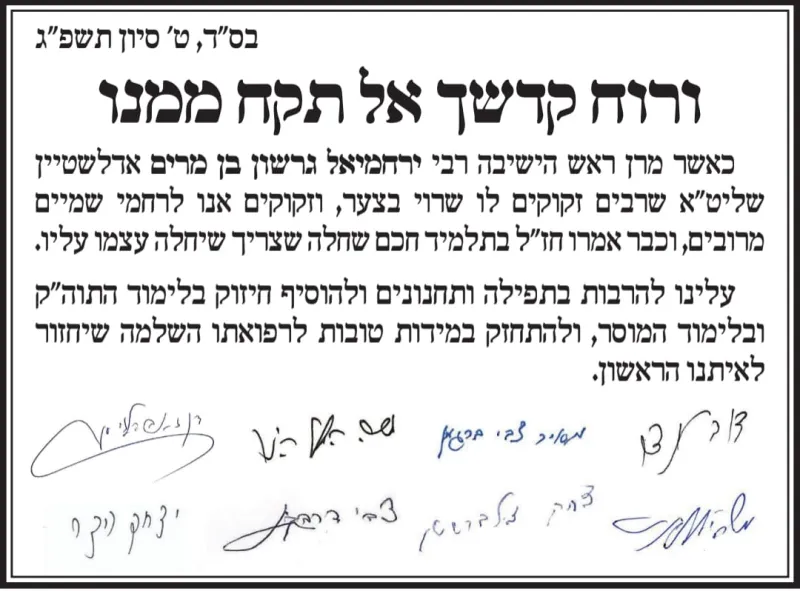 בס"ד, ט' סיון תשפ"ג
ורוח קדשך אל תקח ממנו
כאשר מרן ראש הישיבה רבי ירחמיאל גרשון בן מרים אדלשטיין
שליט"א שרבים זקוקים לו שרוי בצער, וזקוקים אנו לרחמי שמיים
מרובים, וכבר אמרו חז"ל בתלמיד חכם שחלה שצריך שיחלה עצמו עליו.
עלינו להרבות בתפילה ותחנונים ולהוסיף חיזוק בלימוד התוה"ק
ובלימוד המוסר, ולהתחזק במידות טובות לרפואתו השלמה שיחזור
לאיתנו הראשון.
מאיר צבי ברגמן
יצחק הקר צבי דרבקין צחק זילברשטיין